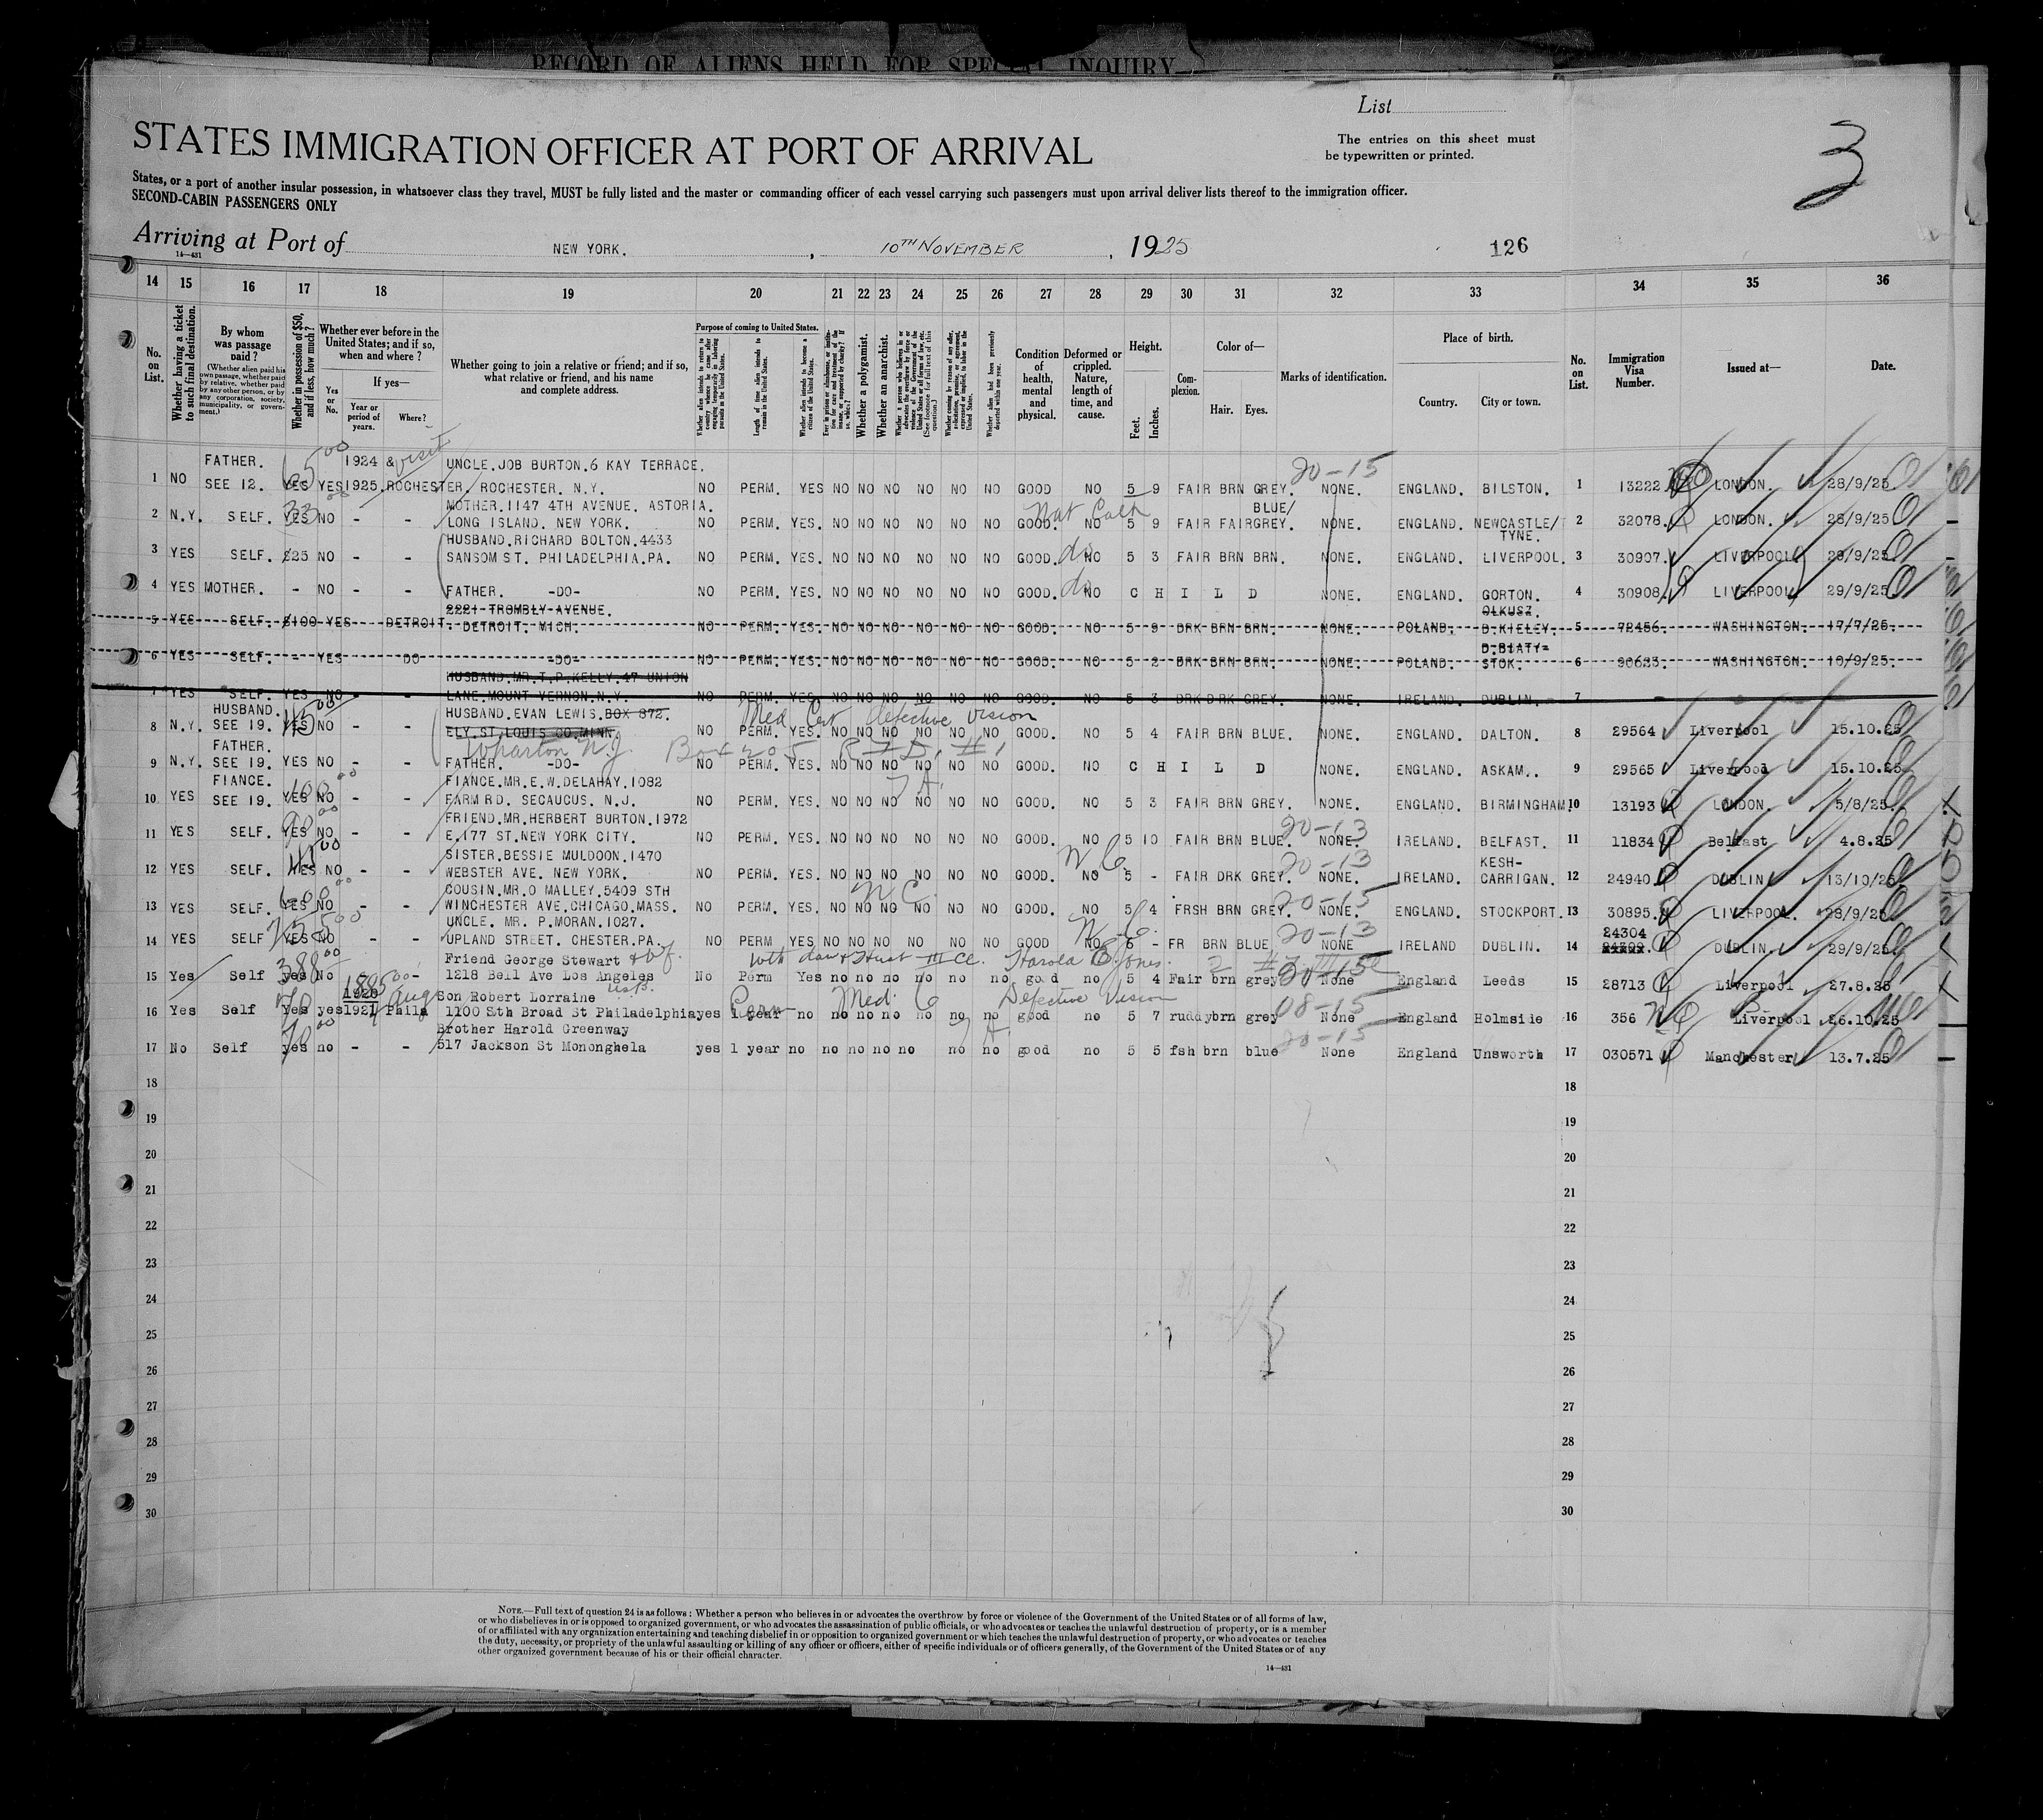 RECORD OF ALIENS HELD FOR SPECIAL INQUIRY
List
STATES IMMIGRATION OFFICER AT PORT OF ARRIVAL
The entries on this sheet must
be typewritten or printed.
3
States, or a port of another insular possession, in whatsoever class they travel, MUST be fully listed and the master or commanding officer of each vessel carrying such passengers must upon arrival deliver lists thereof to the immigration officer.
SECOND-CABIN PASSENGERS ONLY
Arriving at Port of NEW YORK. , 10TH NOVEMBER , 1925 126
14—431
14 15 16 17 18 19 20 21 22 23 24 25 26 27 28 29 30 31 32 33 34 35 36
No. on List.
Whether having a ticket to such final destination.
By whom was passage paid?
(Whether alien paid his own passage, whether paid by relative, whether paid by any other person, or by any corporation, society, municipality, or government.)
Whether in possession of $50, and if less, how much?
Whether ever before in the United States; and if so, when and where?
Yes or No.
If yes—
Year or period of years.
Where?
Whether going to join a relative or friend; and if so, what relative or friend, and his name and complete address.
Purpose of coming to United States.
Whether alien intends to return to country whence he came after engaging temporarily in laboring pursuits in the United States.
Length of time alien intends to remain in the United States.
Whether alien intends to become a citizen of the United States.
Ever in prison or almshouse, or institution for care and treatment of the insane, or supported by charity? If so, which?
Whether a polygamist.
Whether an anarchist.
Whether a person who believes in or advocates the overthrow by force or violence of the Government of the United States or all forms of law, etc. (See footnote for full text of this question.)
Whether coming by reason of any offer, solicitation, promise, or agreement, expressed or implied, to labor in the United States.
Whether alien had been previously deported within one year.
Condition of health, mental and physical.
Deformed or crippled. Nature, length of time, and cause.
Height.
Feet. Inches.
Complexion.
Color of—
Hair. Eyes.
Marks of identification.
Place of birth.
Country. City or town.
No. on List.
Immigration Visa Number.
Issued at—
Date.
FATHER. 65 00 1924 & visit UNCLE.JOB BURTON.6 KAY TERRACE. 20-15
1 NO SEE 12. YES YES 1925.ROCHESTER. ROCHESTER. N.Y. NO PERM. YES NO NO NO NO NO NO GOOD NO 5 9 FAIR BRN GREY. NONE. ENGLAND. BILSTON. 1 13222 LONDON. 28/9/25
33 MOTHER.1147 4TH AVENUE. ASTORIA. Nat Calh BLUE/
2 N.Y. SELF. YES NO - - LONG ISLAND. NEW YORK. NO PERM. YES. NO NO NO NO NO NO GOOD. NO 5 9 FAIR FAIR GREY. NONE. ENGLAND. NEWCASTLE/ TYNE. 2 32078. LONDON. 28/9/25
HUSBAND.RICHARD BOLTON.4433
3 YES SELF. £25 NO - - SANSOM ST. PHILADELPHIA.PA. NO PERM. YES. NO NO NO NO NO NO GOOD. do NO 5 3 FAIR BRN BRN. NONE. ENGLAND. LIVERPOOL. 3 30907. LIVERPOOL 29/9/25
4 YES MOTHER. - NO - - FATHER. -DO- NO PERM. YES. NO NO NO NO NO NO GOOD. do NO C H I L D NONE. ENGLAND. GORTON. 4 30908. LIVERPOOL 29/9/25
2221 TROMBLY AVENUE. OLKUSZ.
5 YES SELF. $100 YES DETROIT. DETROIT. MICH. NO PERM. YES. NO NO NO NO NO NO GOOD. NO 5 9 DRK BRN BRN. NONE. POLAND. D.KIELEY. 5 72456. WASHINGTON. 17/7/25.
D.BIATY=
6 YES SELF. - YES DO -DO- NO PERM. YES. NO NO NO NO NO NO GOOD. NO 5 2 BRK BRN BRN. NONE. POLAND. STOK. 6 90623. WASHINGTON. 10/9/25.
HUSBAND.MR.T.P.KELLY.47 UNION
7 YES SELF. YES NO - - LANE.MOUNT VERNON.N.Y. NO PERM. YES. NO NO NO NO NO NO GOOD. NO 5 3 DRK DRK GREY. NONE. IRELAND. DUBLIN. 7 -
HUSBAND. 15 00 HUSBAND.EVAN LEWIS.BOX 872. Med Cert defective vision
8 N.Y. SEE 19. YES NO - - ELY.ST.LOUIS CO.MINN. NO PERM. YES. NO NO NO NO NO NO GOOD. NO 5 4 FAIR BRN BLUE. NONE. ENGLAND. DALTON. 8 29564 Liverpool 15.10.25
FATHER. Wharton N.J. Box 205 R.F.D. #1
9 N.Y. SEE 19. YES NO - - FATHER. -DO- NO PERM. YES. NO NO NO NO NO NO GOOD. NO C H I L D NONE. ENGLAND. ASKAM. 9 29565 Liverpool 15.10.25
FIANCE. 100 00 FIANCE.MR.E.W.DELAHAY.1082
10 YES SEE 19. YES NO - - FARM RD. SECAUCUS. N.J. NO PERM. YES. NO NO NO NO NO NO GOOD. NO 5 3 FAIR BRN GREY. NONE. ENGLAND. BIRMINGHAM. 10 13193 LONDON. 5/8/25.
FRIEND.MR.HERBERT BURTON.1972 20-13
11 YES SELF. YES NO - - E.177 ST.NEW YORK CITY. NO PERM. YES. NO NO NO NO NO NO GOOD. NO 5 10 FAIR BRN BLUE. NONE. IRELAND. BELFAST. 11 11834 Belfast 4.8.25
SISTER.BESSIE MULDOON.1470 N C 20-13 KESH-
12 YES SELF. YES NO - - WEBSTER AVE. NEW YORK. NO PERM. YES. NO NO NO NO NO NO GOOD. NO 5 - FAIR DRK GREY. NONE. IRELAND. CARRIGAN. 12 24940 DUBLIN 13/10/25
COUSIN.MR.O MALLEY.5409 STH N C. 20-15
13 YES SELF. YES NO - - WINCHESTER AVE.CHICAGO.MASS. NO PERM. YES. NO NO NO NO NO NO GOOD. NO 5 4 FRSH BRN GREY. NONE. ENGLAND. STOCKPORT. 13 30895. LIVERPOOL. 28/9/25
UNCLE. MR. P.MORAN.1027. N C. 20-13 24304
14 YES SELF YES NO - - UPLAND STREET. CHESTER.PA. NO PERM YES NO NO NO NO NO NO GOOD NO 5 - FR BRN BLUE NONE IRELAND DUBLIN. 14 DUBLIN. 29/9/25
388 00 Friend George Stewart Harold B. Jones.
15 Yes Self yes No - - 1218 Bell Ave Los Angeles No Perm Yes no no no no no no good no 5 4 Fair brn grey None England Leeds 15 28713 Liverpool 27.8.25
1920 Son Robert Lorraine Perm Med. C Defective Vision 08-15
16 Yes Self Yes yes 1921 Phila 1100 Sth Broad St Philadelphia yes 1 year no no no no no no no good no 5 7 ruddy brn grey None England Holmside 16 356 Liverpool 26.10.25
70 00 Brother Harold Greenway 20-15
17 No Self yes no - - 517 Jackson St Mononghela yes 1 year no no no no no no no good no 5 5 fsh brn blue None England Unsworth 17 030571 Manchester 13.7.25
18 18
19 19
20 20
21 21
22 22
23 23
24 24
25 25
26 26
27 27
28 28
29 29
30 30
NOTE.—Full text of question 24 is as follows: Whether a person who believes in or advocates the overthrow by force or violence of the Government of the United States or of all forms of law,
or who disbelieves in or is opposed to organized government, or who advocates the assassination of public officials, or who advocates or teaches the unlawful destruction of property, or is a member
of or affiliated with any organization entertaining and teaching disbelief in or opposition to organized government or which teaches the unlawful destruction of property, or who advocates or teaches
the duty, necessity, or propriety of the unlawful assaulting or killing of any officer or officers, either of specific individuals or of officers generally, of the Government of the United States or of any
other organized government because of his or their official character.
14—431